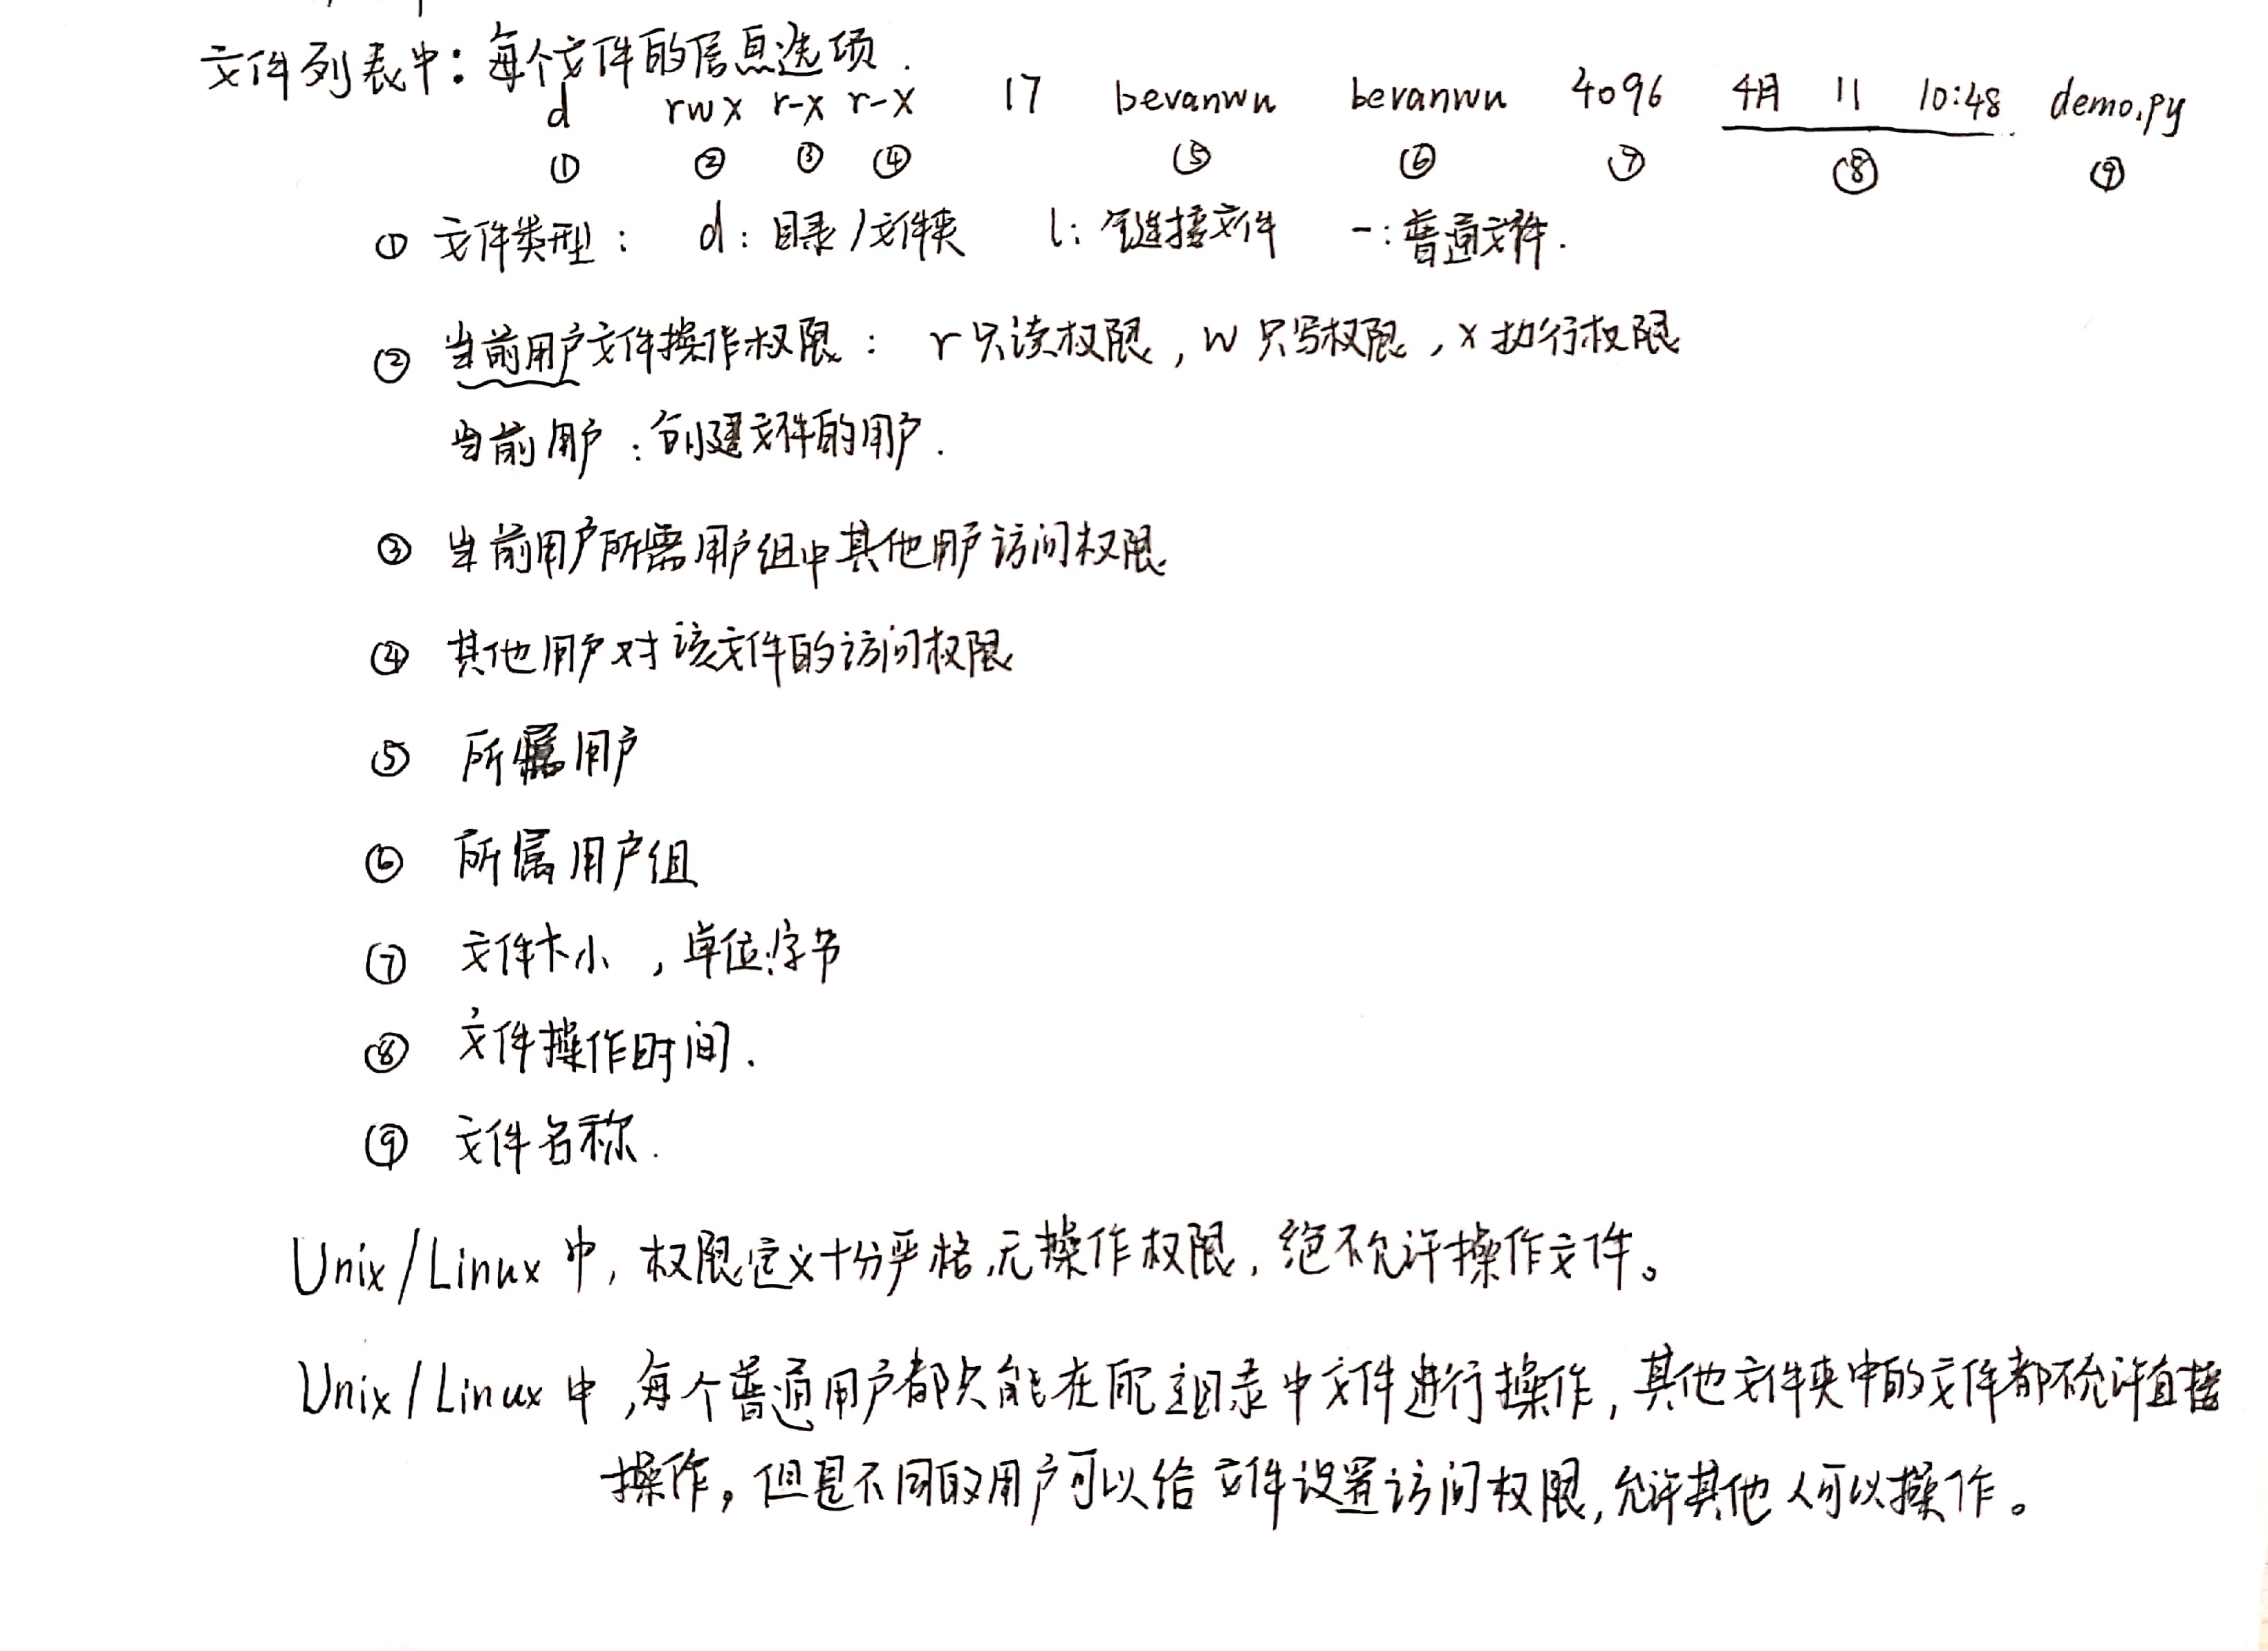 文件列表中：每个文件的信息选项.
d rwx r-x r-x 17 bevanwu bevanwu 4096 4月 11 10:48 demo.py
① ② ③ ④ ⑤ ⑥ ⑦ ⑧ ⑨
① 文件类型： d：目录/文件夹 l：链接文件 -：普通文件.
② 当前用户文件操作权限： r只读权限，w只写权限，x执行权限
当前用户：创建文件的用户.
③ 当前用户所需用户组中其他用户访问权限.
④ 其他用户对该文件的访问权限
⑤ 所属用户
⑥ 所属用户组
⑦ 文件大小，单位:字节
⑧ 文件操作时间.
⑨ 文件名称.
Unix/Linux中，权限定义十分严格,无操作权限，绝不允许操作文件。
Unix/Linux中，每个普通用户都只能在 中文件进行操作，其他文件夹中的文件都不允许直接
操作，但是不同的用户可以给文件设置访问权限，允许其他人可以操作。